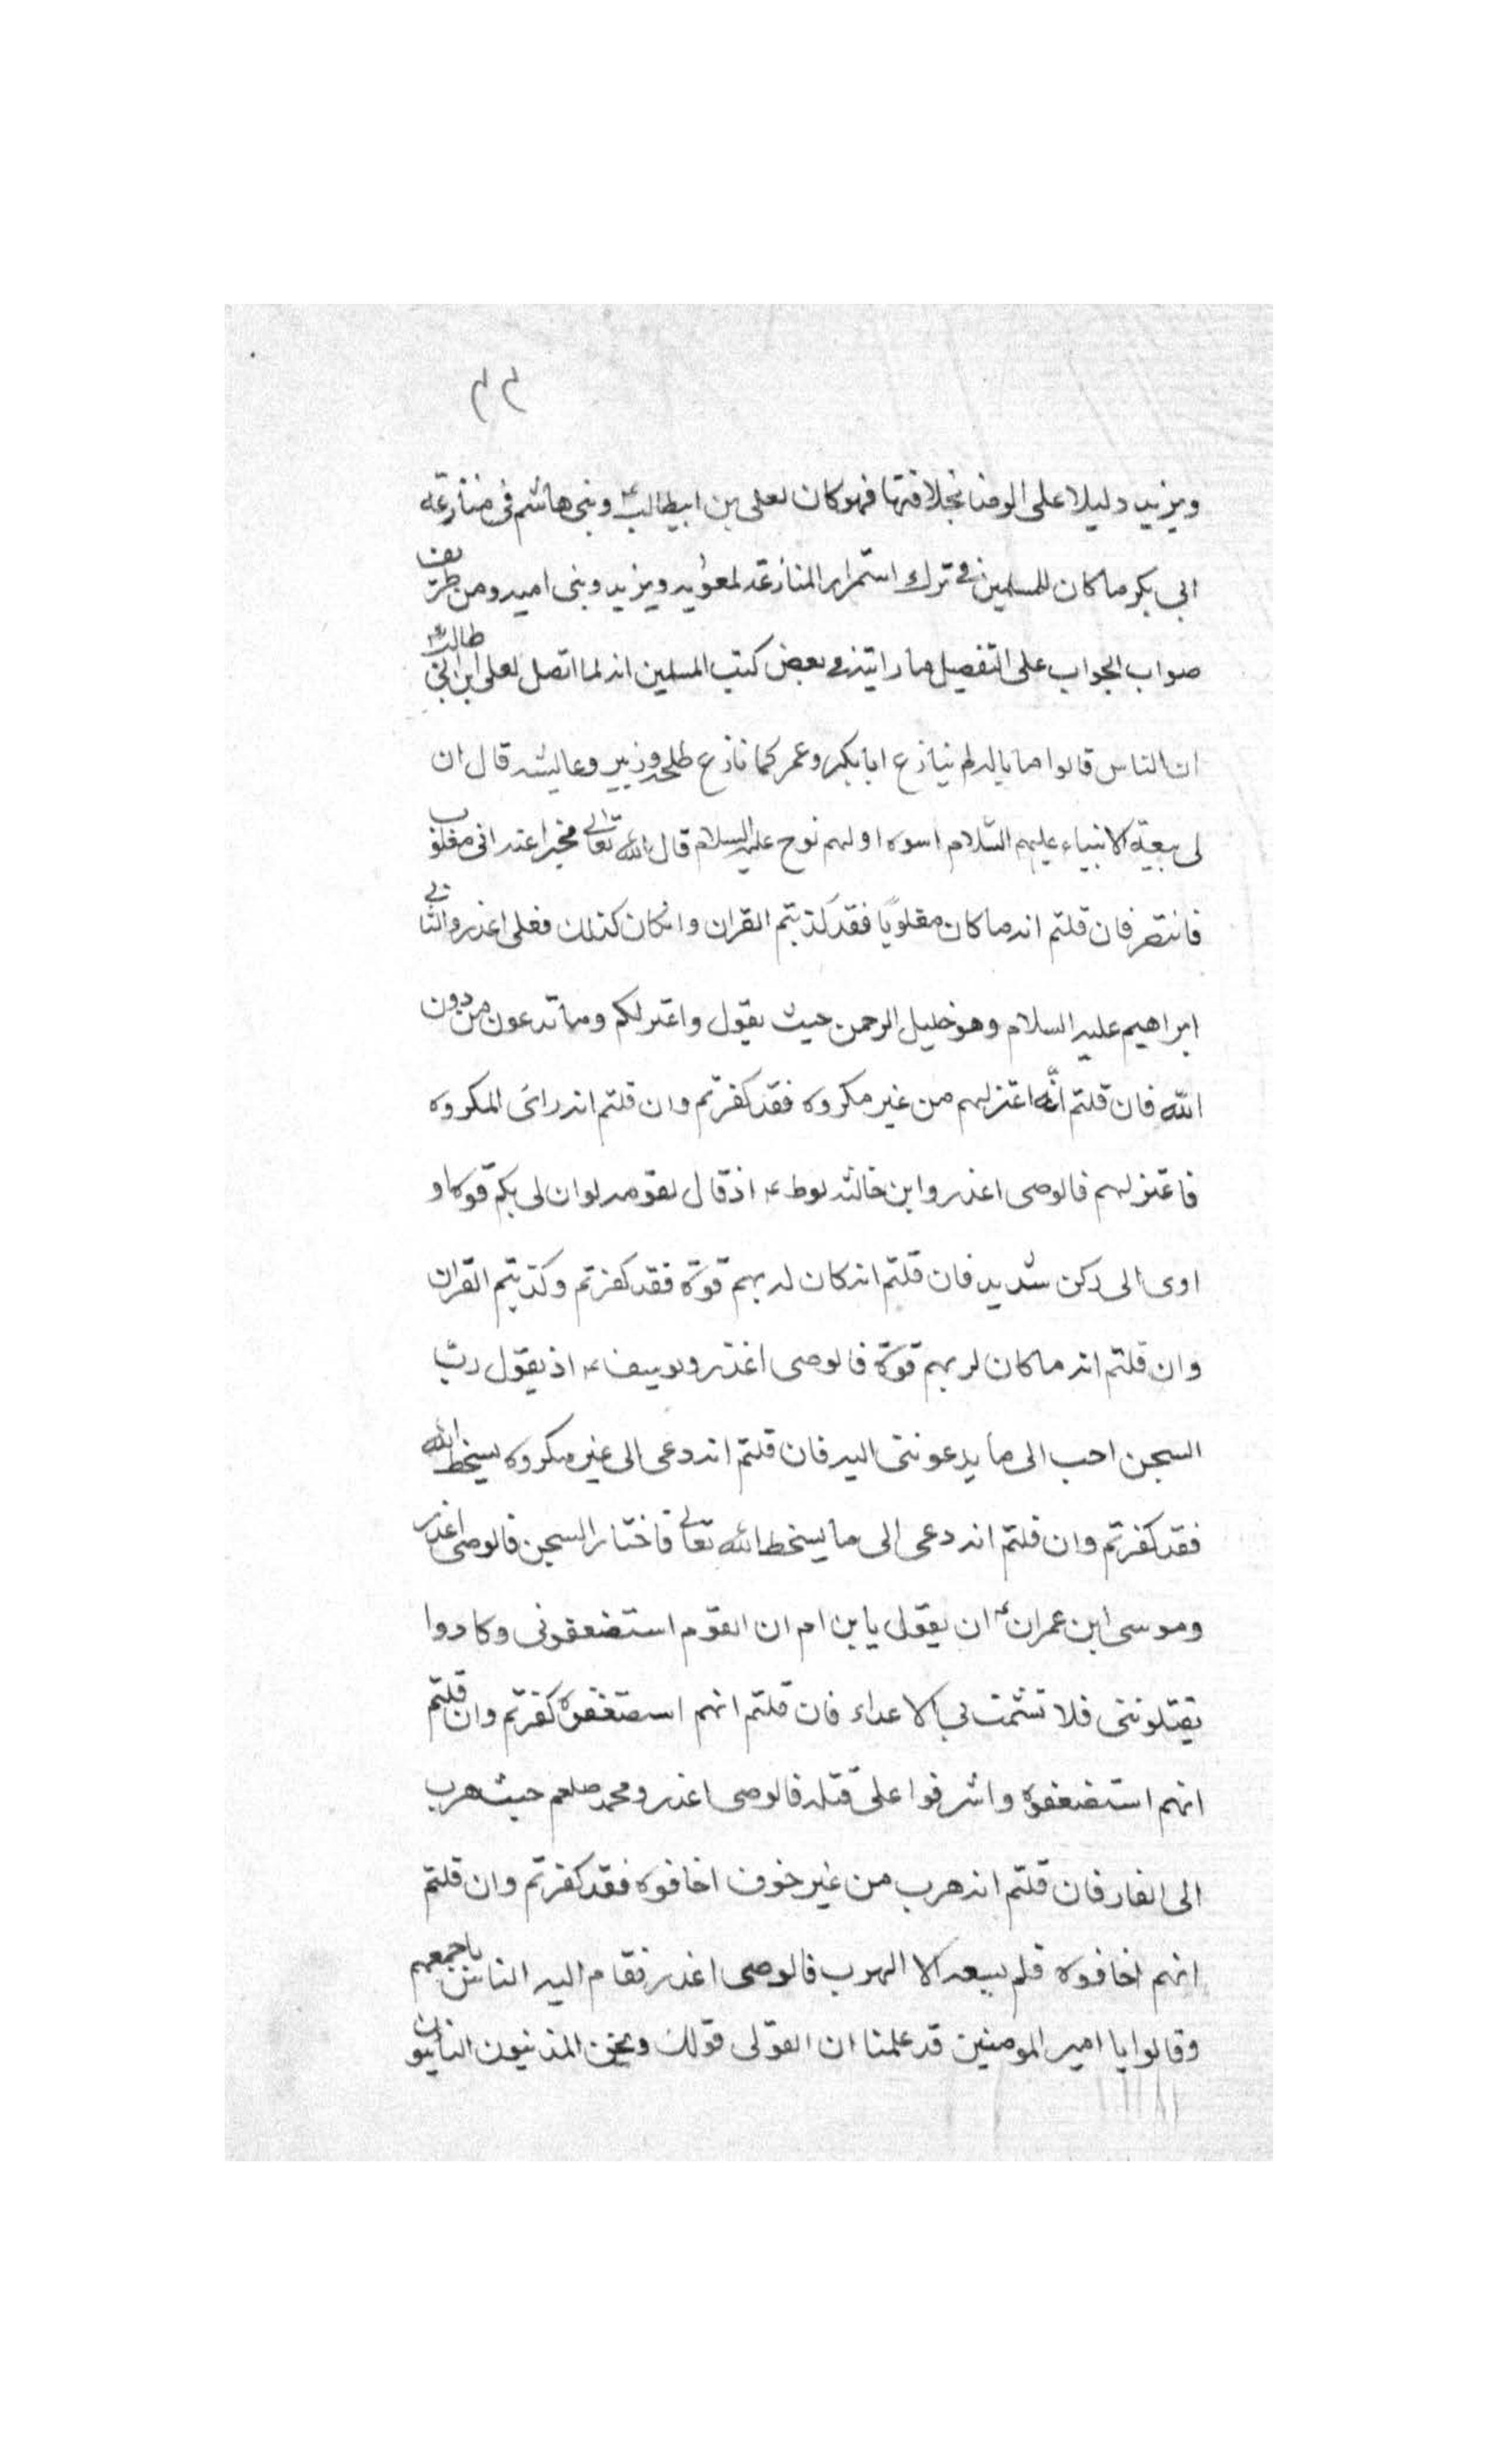 ٢٢
ويزيد دليلا على الرضا بخلافتها فهو كان لعلى بن ابيطالب ع وبنى هاشم فى منازعة
ابي بكر ما كان للمسلمين في ترك استمرار المنازعة لمعويه ويزيد وبنى اميه ومن طريف
صواب الجواب على التفصيل ما رايته في بعض كتب المسلمين انه لما اتصل لعلى ابن ابي طالب ع
ان الناس قالوا ما باله لم ينازع ابا بكر وعمر كما نازع طلحه وزبير وعايشه قال ان
لى ببقية الانبياء عليهم السّلام اسوه اولهم نوح عليه السلام قال الله تعالى مخبرا عنه انى مغلوب
فانتصر فان قلتم انه ما كان مغلوبًا فقد كذبتم القران وان كان كذلك فعلى اعذر والثاني
ابراهيم عليه السلام وهو خليل الرحمن حيث يقول واعتزلكم وما تدعون من دون
الله فان قلتم انّه اعتزلهم من غير مكروه فقد كفرتم وان قلتم انه راى المكروه
فاعتزلهم فالوصى اعذر وابن خالته لوط ع اذ قال لقومه لو ان لى بكم قوة او
اوى الى ركن شديد فان قلتم انه كان له بهم قوّة فقد كفرتم وكذبتم القران
وان قلتم انه ما كان له بهم قوّة فالوصى اعذر ويوسف ع اذ يقول ربّ
السجن احب الى ما يدعوننى اليه فان قلتم انه دعى الى غير مكروه يسخط الله
فقد كفرتم وان قلتم انه دعى الى ما يسخط الله تعالى فاختار السجن فالوصى اعذر
وموسى ابن عمران ع ان يقول يابن ام ان القوم استضعفونى وكادوا
يقتلوننى فلا تشمت بي الاعداء فان قلتم انهم استضعفوه كفرتم وان قلتم
انهم استضعفوه واشرفوا على قتله فالوصى اعذر ومحمد صلعم حيث هرب
الى الغار فان قلتم انه هرب من غير خوف اخافوه فقد كفرتم وان قلتم
انهم اخافوه فلم يسعه الا الهرب فالوصى اعذر فقام اليه الناس باجمعهم
وقالوا يا امير المومنين قد علمنا ان القول قولك ونحن المذنبون التائبون